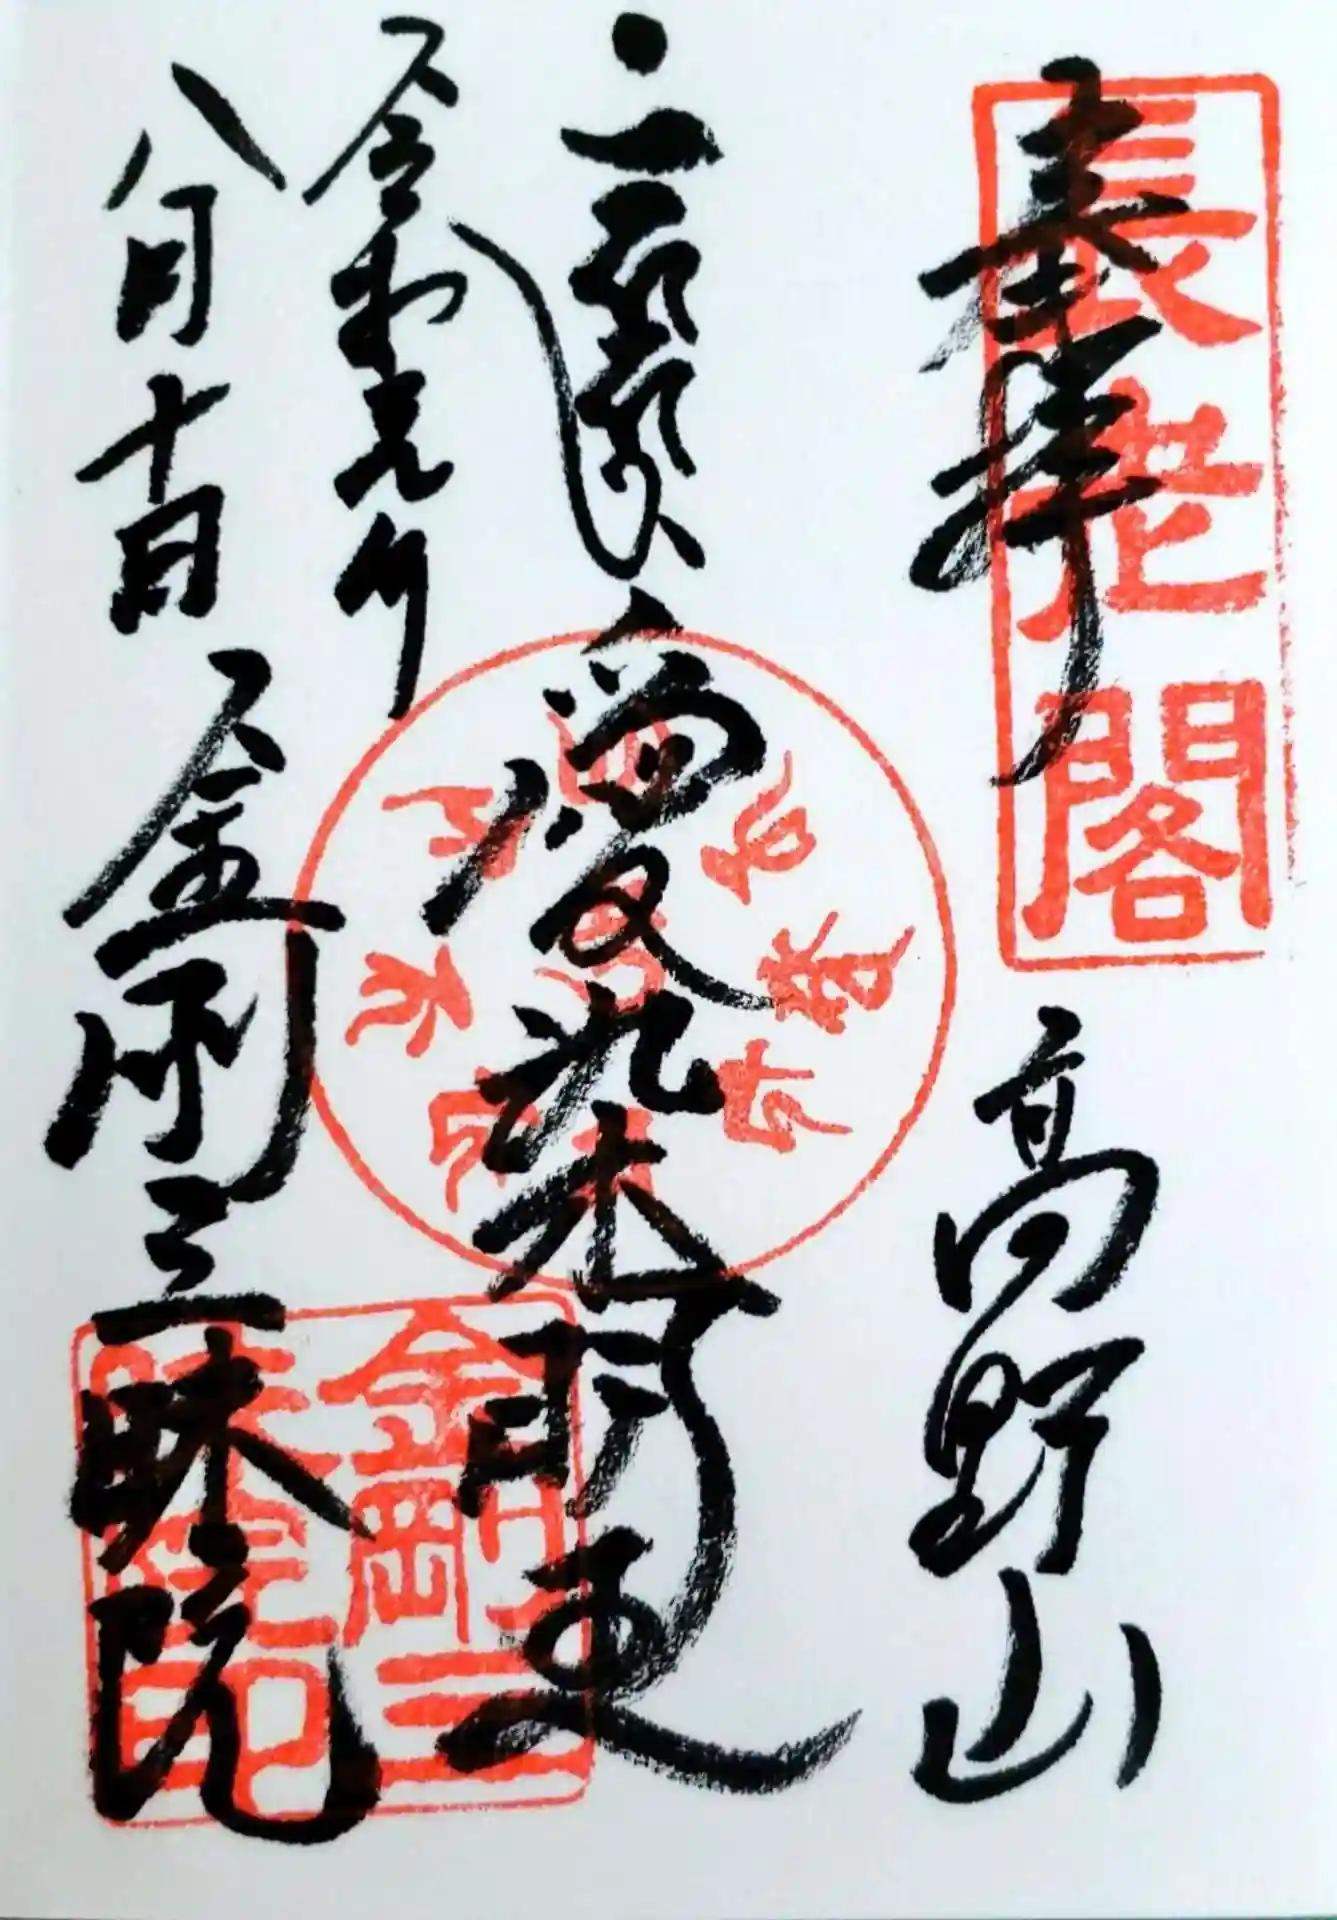 奉拝
高野山
長老閣
愛染明王
令和元年
八月十日
金剛三昧院
金剛三昧院印